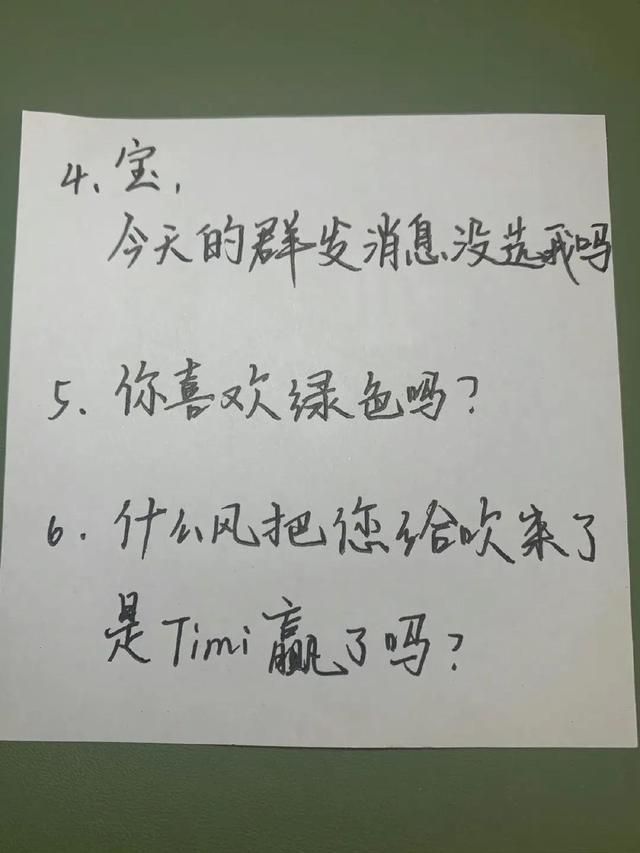 4、宝,
今天的群发消息没选我吗
5、你喜欢绿色吗?
6.什么风把您给吹来了
是Timi赢了吗?